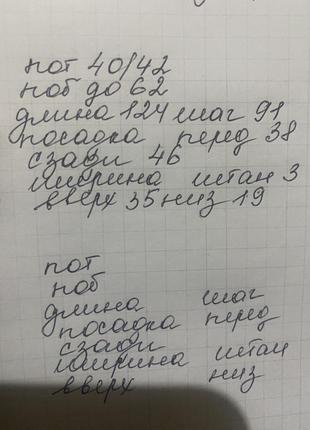 пот 40/42
поб до 62
длина 124 шаг 91
посадка перед 38
сзади 46
ширина штан 3
вверх 35 низ 19
пот
поб
длина шаг
посадка перед
сзади
ширина штан
вверх низ